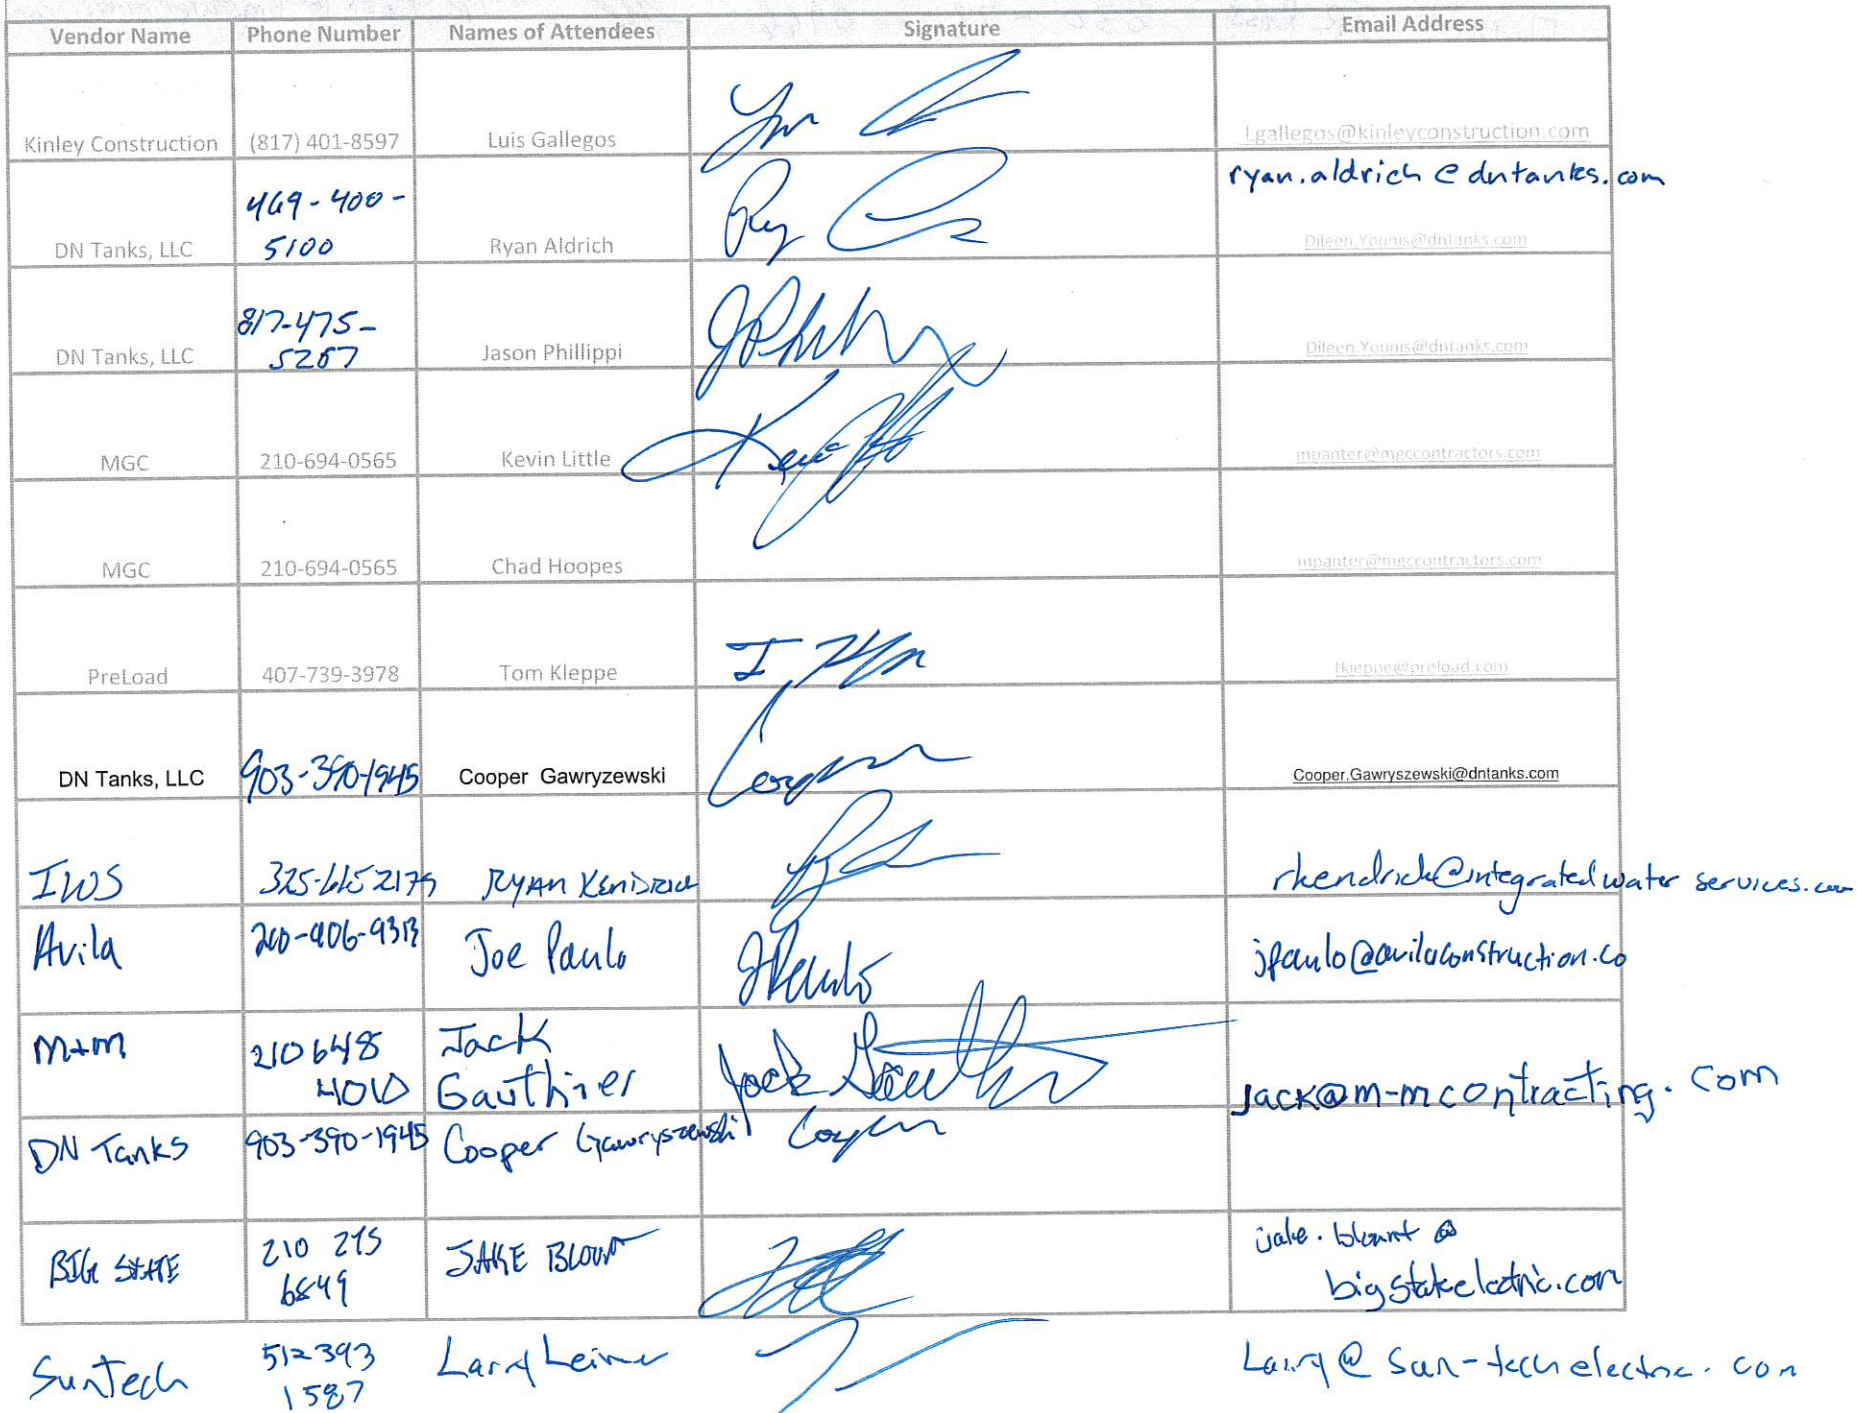 Vendor Name Phone Number Names of Attendees Signature Email Address
Kinley Construction (817) 401-8597 Luis Gallegos Lgallegos@kinleyconstruction.com
ryan.aldrich@dntanks.com
469-400-
DN Tanks, LLC 5100 Ryan Aldrich Dileen.Younis@dntanks.com
817-475-
DN Tanks, LLC Jason Phillippi Dileen.Younis@dntanks.com
MGC 210-694-0565 Kevin Little mpanter@mgccontractors.com
MGC 210-694-0565 Chad Hoopes mpanter@mgccontractors.com
PreLoad 407-739-3978 Tom Kleppe tkleppe@preload.com
DN Tanks, LLC 903-390-1945 Cooper Gawryzewski Cooper.Gawryszewski@dntanks.com
IWS RYAN KENDRICK rkendrick@integratedwaterservices.com
Avila Joe Paulo jpaulo@avilaconstruction.co
JPaulo
M+M 210 648 Jack
4010 Gauthier Jack Gauthier jack@m-mcontracting.com
DN Tanks 903-390-1945 Cooper Gawryszewski
BIG STATE 210 275 JAKE BLOUNT jake.blount@
6849 bigstateelectric.com
SunTech 512 393 Larry Larry@sun-techelectric.com
1587